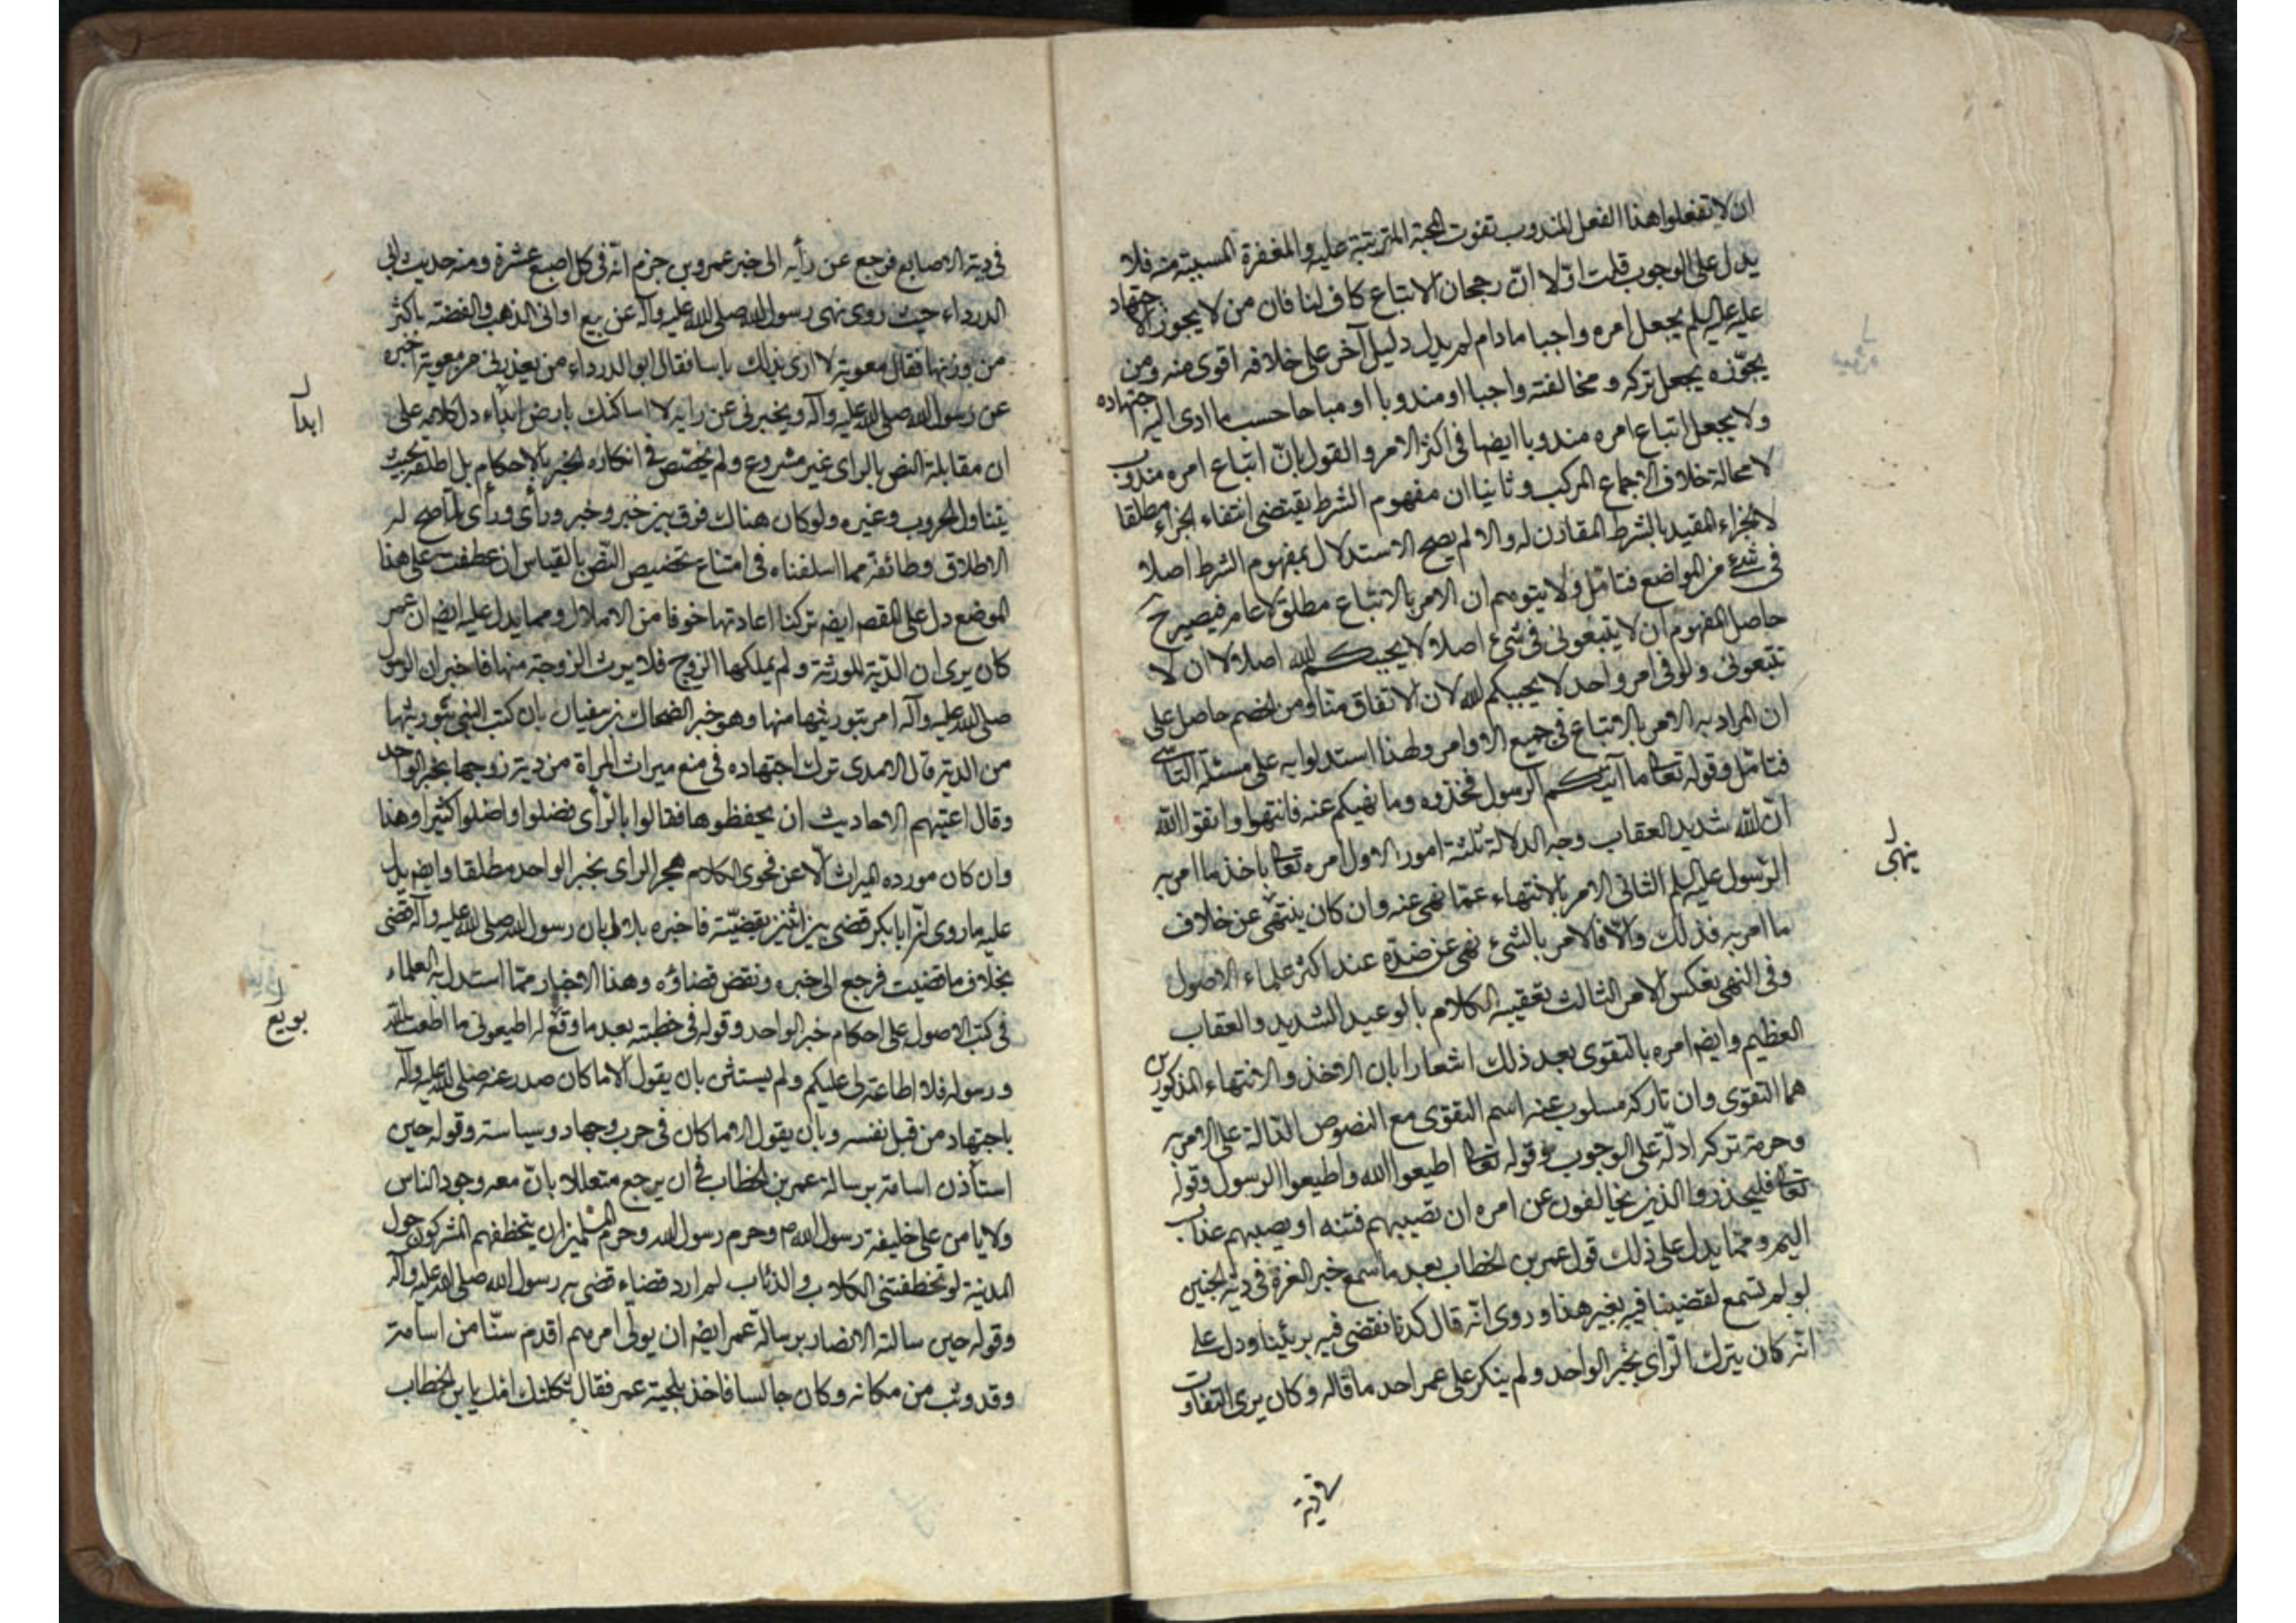 ان لا تفعلوا هذا الفعل المندوب تفوت المحبة المترتبة عليه والمغفرة المسببة منه فلا
يدل على الوجوب قلت اوّلا انّ رجحان الاتباع كاف لنا فان من لا يجوز الاجتهاد
عليه عليه السلم يجعل امره واجبا ما دام لم يدل دليل آخر على خلافه اقوى منه ومن
يجوّزه يجعل تركه ومخالفته واجبا او مندوبا او مباحا حسب ما ادى اليه اجتهاده
ولا يجعل اتباع امره مندوبا ايضا فى اكثر الامر والقول بانّ اتباع امره مندوب
لا محالة خلاف الاجماع المركب وثانيا ان مفهوم الشرط يقتضى انتفاء الجزاء مطلقا
لا الجزاء المقيد بالشرط المقارن له والا لم يصح الاستدلال بمفهوم الشرط اصلا
فى شئ من المواضع فتامّل ولا يتوهم ان الامر بالاتباع مطلق لا عام فيصير ح
حاصل المفهوم ان لا يتبعونى فى شئ اصلا لا يحببكم الله اصلا لا ان لا
تتبعونى ولو فى امر واحد لا يحببكم الله لان الاتفاق منا ومن الخصم حاصل على
ان المراد به الامر بالاتباع فى جميع الاوامر ولهذا استدلوا به على مسئلة التأسّى
فتامّل وقوله تعالى ما آتيكم الرسول فخذوه وما نهيكم عنه فانتهوا واتقوا الله
انّ الله شديد العقاب وجه الدلالة ثلثة امور الاول امره تعالى باخذ ما امر به
الرّسول عليه السلم الثانى الامر بالانتهاء عمّا نهى عنه وان كان ينتهى عن خلاف
ينهى
ما امر به فذلك والّا فالامر بالشئ نهى عن ضدّه عند اكثر علماء الاصول
وفى النهى بعكس الامر الثالث تعقيبه الكلام بالوعيد الشديد والعقاب
العظيم وايضا امره بالتقوى بعد ذلك اشعارا بان الاخذ والانتهاء المذكورين
هما التقوى وان تاركه مسلوب عنه اسم التقوى مع النصوص الدّالة على الامر به
وحرمة تركه ادلّة على الوجوب وقوله تعالى اطيعوا الله واطيعوا الرسول وقوله
تعالى فليحذروا الذين يخالفون عن امره ان تصيبهم فتنه او يصيبهم عذاب
اليم ومما يدل على ذلك قول عمر بن الخطاب بعد ما سمع خبر الغرة فى دية الجنين
لو لم نسمع لقضينا فيه بغير هذا وروى انّه قال كدنا نقضى فيه برئينا ودل على
انّه كان يترك الرّاى بخبر الواحد ولم ينكر على عمر احد ما قاله وكان يرى التفاوت
فى دية
فى دية الاصابع فرجع عن رأيه الى خبر عمرو بن حزم انّه فى كل اصبع عشرة ومنه حديث ابى
الدرداء حيث روى نهى رسول الله صلى الله عليه وآله عن بيع اوانى الذهب والفضة باكثر
من وزنها فقال معوية لا ارى بذلك باسا فقال ابو الدرداء من يعذرنى من معوية اخبره
عن رسول الله صلى الله عليه وآله ويخبرنى عن رايه لا اساكنك بارض ابداء دل كلامه على
ابدا
ان مقابلة النص بالراى غير مشروع ولم يختص فى انكاره الخبر بالاحكام بل اطلقه بحيث
يتناول الحروب وغيره ولو كان هناك فرق بين خبر وخبر ورأى ورأى لما صح له
الاطلاق وطائفة مما اسلفناه فى امتناع تخصيص النّص بالقياس ان عطفت على هذا
الموضع دل على المقصد ايضا تركنا اعادتها خوفا من الاملال ومما يدل عليه ايضا ان عمر
كان يرى ان الدّية للورثة ولم يملكها الزوج فلا يرث الزوجة منها فاخبر ان الرسول
صلى الله عليه وآله امر بتوريثها منها وهو خبر الضحاك بن سفيان بان كتب النبى بتوريثها
من الدية قال الامدى ترك اجتهاده فى منع ميراث المرأة من دية زوجها بخبر الواحد
وقال اعيتهم الاحاديث ان يحفظوها فقالوا بالرّأى فضلوا واضلوا كثيرا وهذا
وان كان مورده الميراث الّا عن فحوى الكلام هجر الراى بخبر الواحد مطلقا وايضا يدل
عليه ما روى انّ ابا بكر قضى بين اثنين بقضيّة فاخبره بلال بان رسول الله صلى الله عليه وآله قضى
بخلاف ما قضيت فرجع الى خبره ونقض قضاؤه وهذا الاخبار ممّا استدل به العلماء
فى كتب الاصول على احكام خبر الواحد وقوله فى خطبته بعد ما وقع له اطيعونى ما اطعت الله
بويع
ورسوله فلا اطاعة لى عليكم ولم يستثن بان يقول الا ما كان صدر عنه صلى الله عليه وآله
باجتهاد من قبل نفسه وبان يقول الا ما كان فى حرب وجهاد وسياسة وقوله حين
استأذن اسامة برسالة عمر بن الخطاب فى ان يرجع متعللا بانّ معه وجود الناس
ولا يا من على خليفة رسول الله م وحرم رسول الله وحرم المسلمين ان يتخطفهم المشركون حول
المدنية لو تخطفتنى الكلاب والذئاب لم ارد قضاء قضى به رسول الله صلى الله عليه وآله
وقوله حين سالته الانصار برسالة عمر ايضا ان يولّى امرهم اقدم سنّا من اسامة
وقد وثب من مكانه وكان جالسا فاخذ بلحية عمر فقال ثكلتك امك يا بن الخطاب